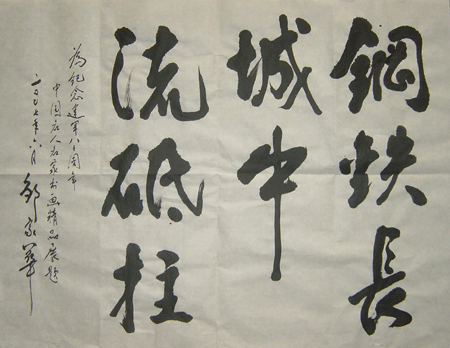 鋼铁長
城中
流砥柱
為纪念建軍八十周年
中国名人名家书画精品展题
二〇〇七年六月 邹家華